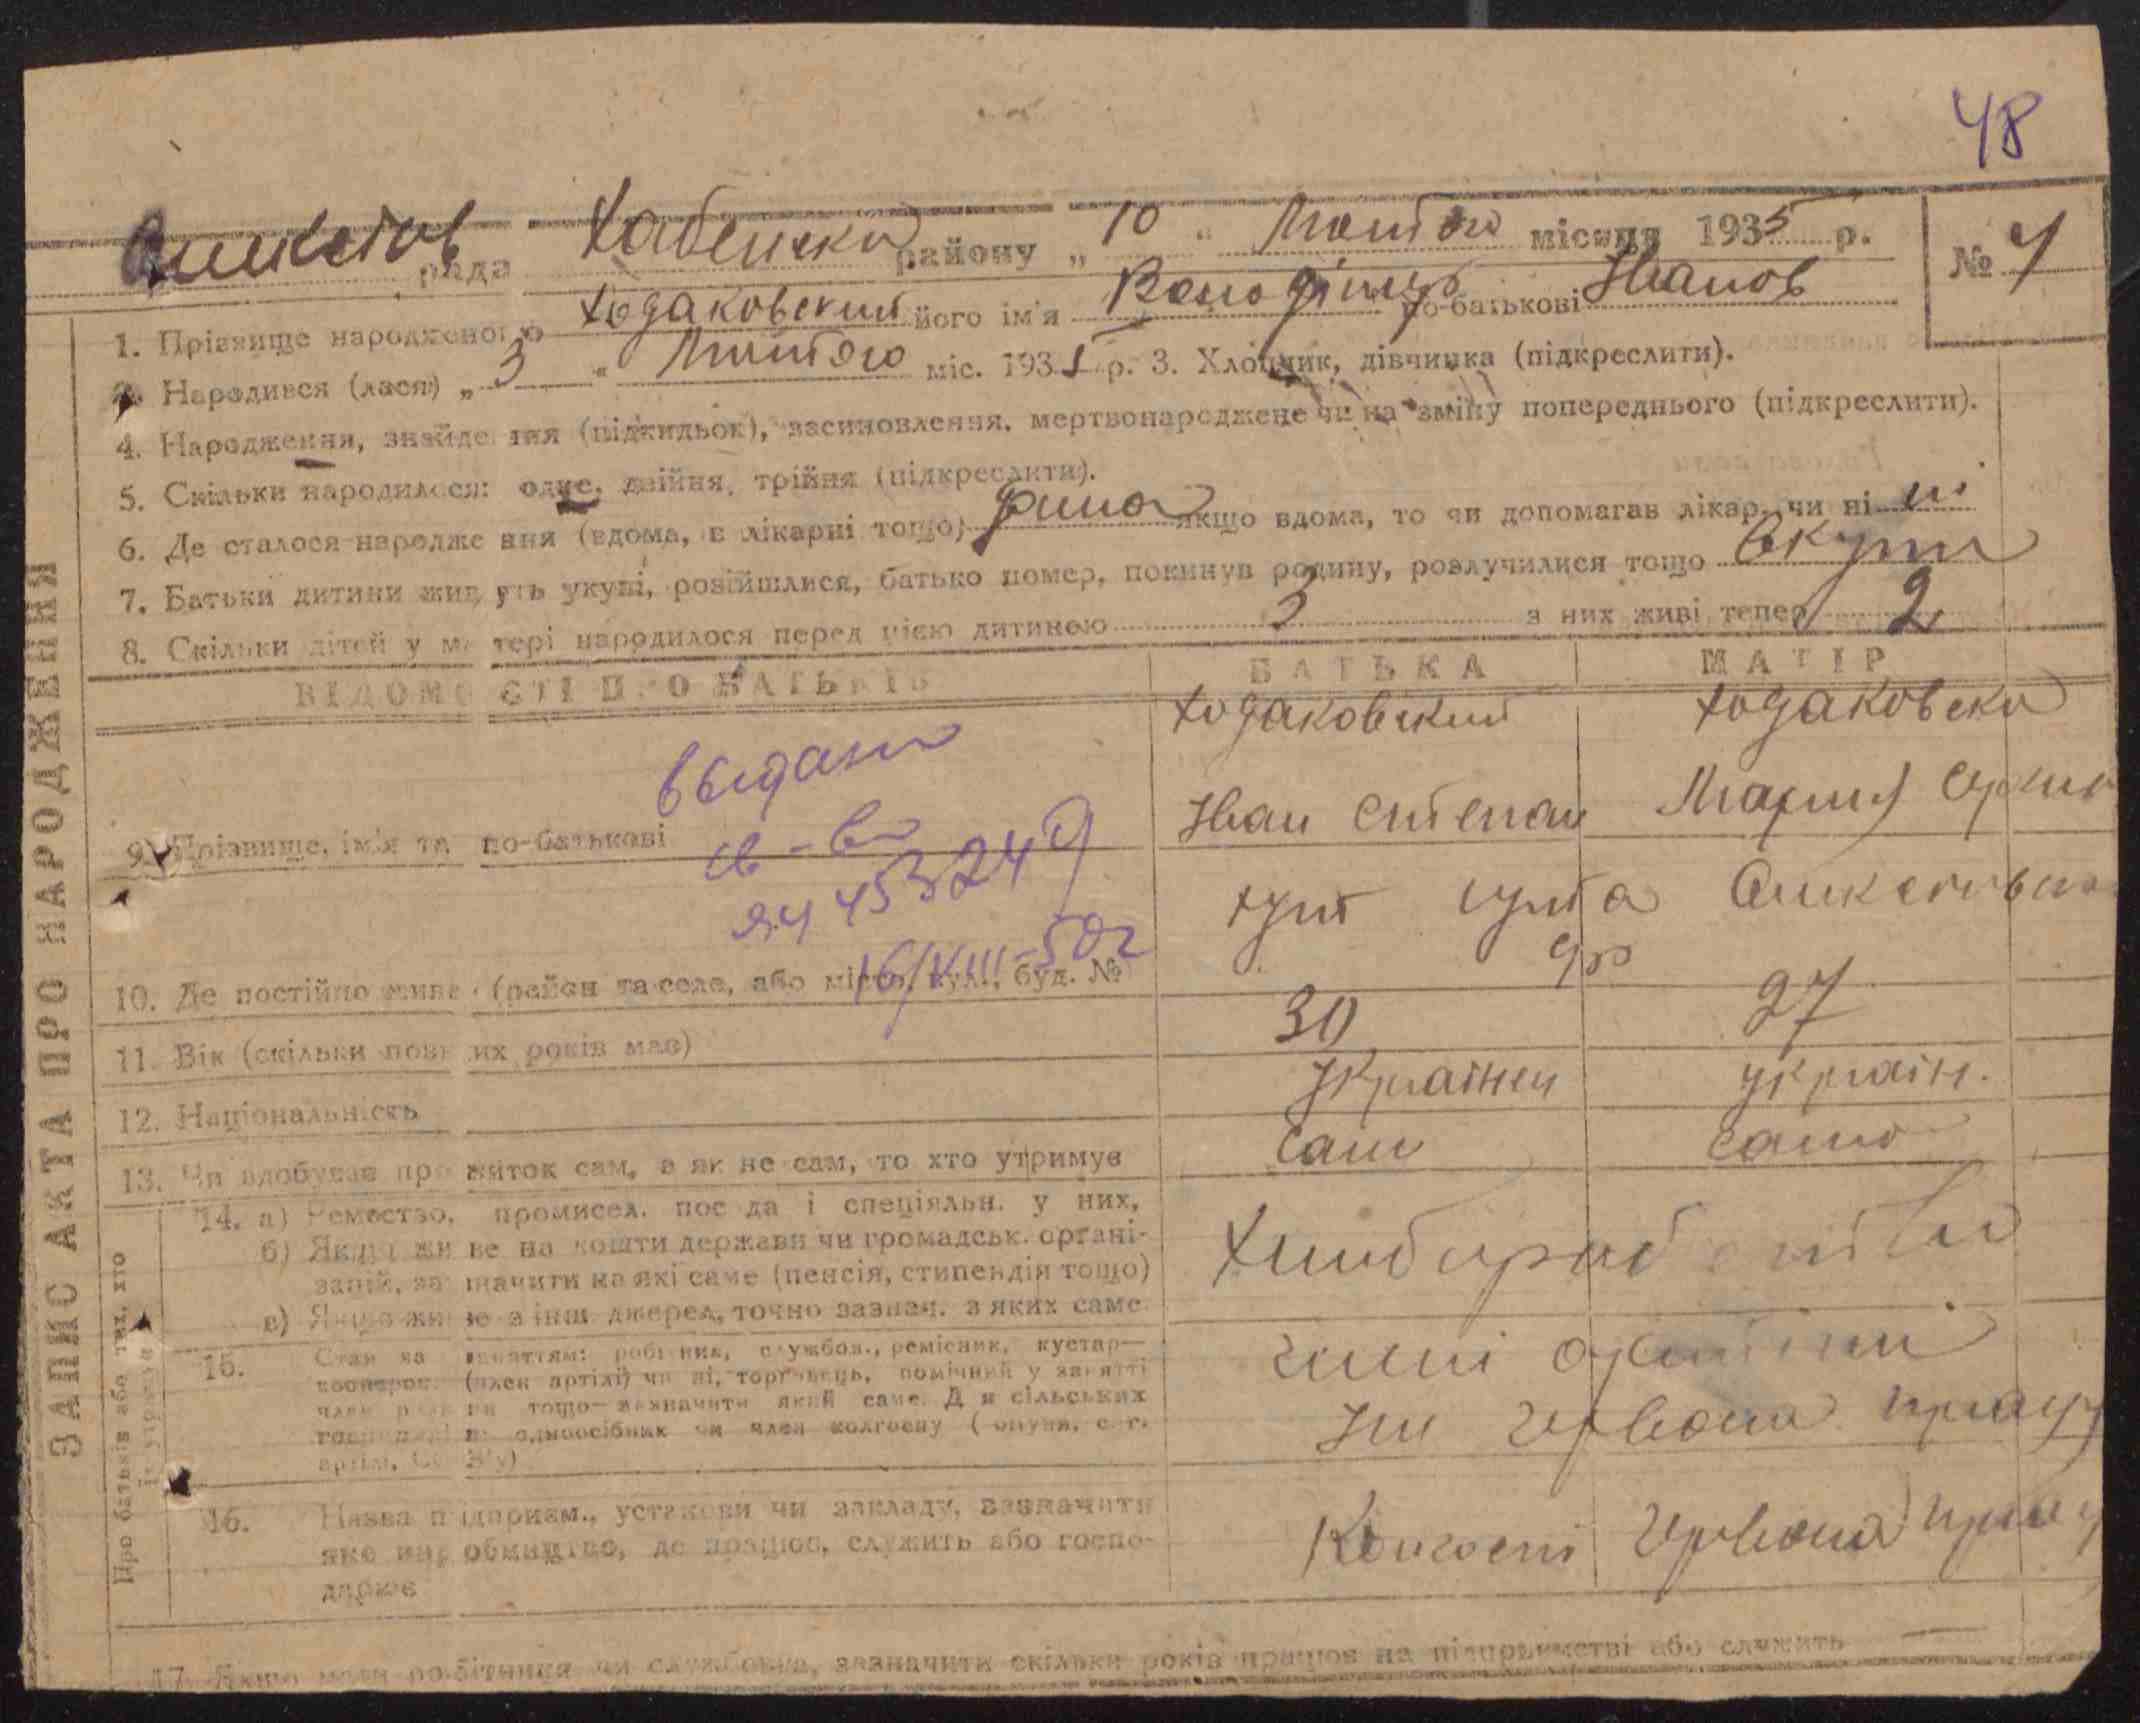 48
рада Хабенско району „ 10 " Лютого місяця 1935 р. № 7
1. Прізвище народженого Ходаковский його ім'я Володімир по-батькові Іванов
2. Народився (лася) „ 3 " Лютого міс. 1935 р. 3. Хлопчик, дівчинка (підкреслити).
4. Народження, знайдення (підкидьок), засиновлення, мертвонароджене чи на зміну попереднього (підкреслити).
5. Скільки народилося: одне, двійня, трійня (підкреслити).
6. Де сталося народження (вдома, в лікарні тощо) дома якщо вдома, то чи допомагав лікар, чи ні ні
7. Батьки дитини живуть укупі, розійшлися, батько помер, покинув родину, розлучилися тощо Вкупі
8. Скільки дітей у матері народилося перед цією дитиною 3 з них живі тепер 2
ЗАПИС АКТА ПРО НАРОДЖЕННЯ
ВІДОМОСТІ ПРО БАТЬКІВ БАТЬКА МАТІР
Ходаковский Ходаковска
выдано
Іван Степан Мария
9. Прізвище, ім'я та по-батькові
св-во
ЯЧ 453249
16/VIII-50г
10. Де постійно живе (район та село, або місто, вул., буд. №
11. Вік (скільки повних років має) 30 27
12. Національність Українец україн.
13. Чи здобував прожиток сам, а як не сам, то хто утримує Сам сама
Про батьків або тих, хто їх утримує
14. а) Ремество, промисел, посада і спеціяльн. у них, Хліборобство
б) Якщо живе на кошти держави чи громадськ. організацій, зазначити на які саме (пенсія, стипендія тощо)
в) Якщо живе з інш джерел, точно зазнач. з яких саме
15. Стан за заняттям: робітник, службов., ремісник, кустар—
коопером. (член артілі) чи ні, торговець, помічний у занятті
член родини тощо—зазначити який саме. Для сільських
господарів одноосібник чи член колгоспу (комуни, с. г.
артілі, СОЗ'у)
Червона праця
16. Назва підприєм., установи чи закладу, зазначити
яке виробництво, де працює, служить або госпо-
дарює
Колгосп Червона праця
17. Якщо мати робітниця чи службовка, зазначити скільки років працює на підприємстві або служить —